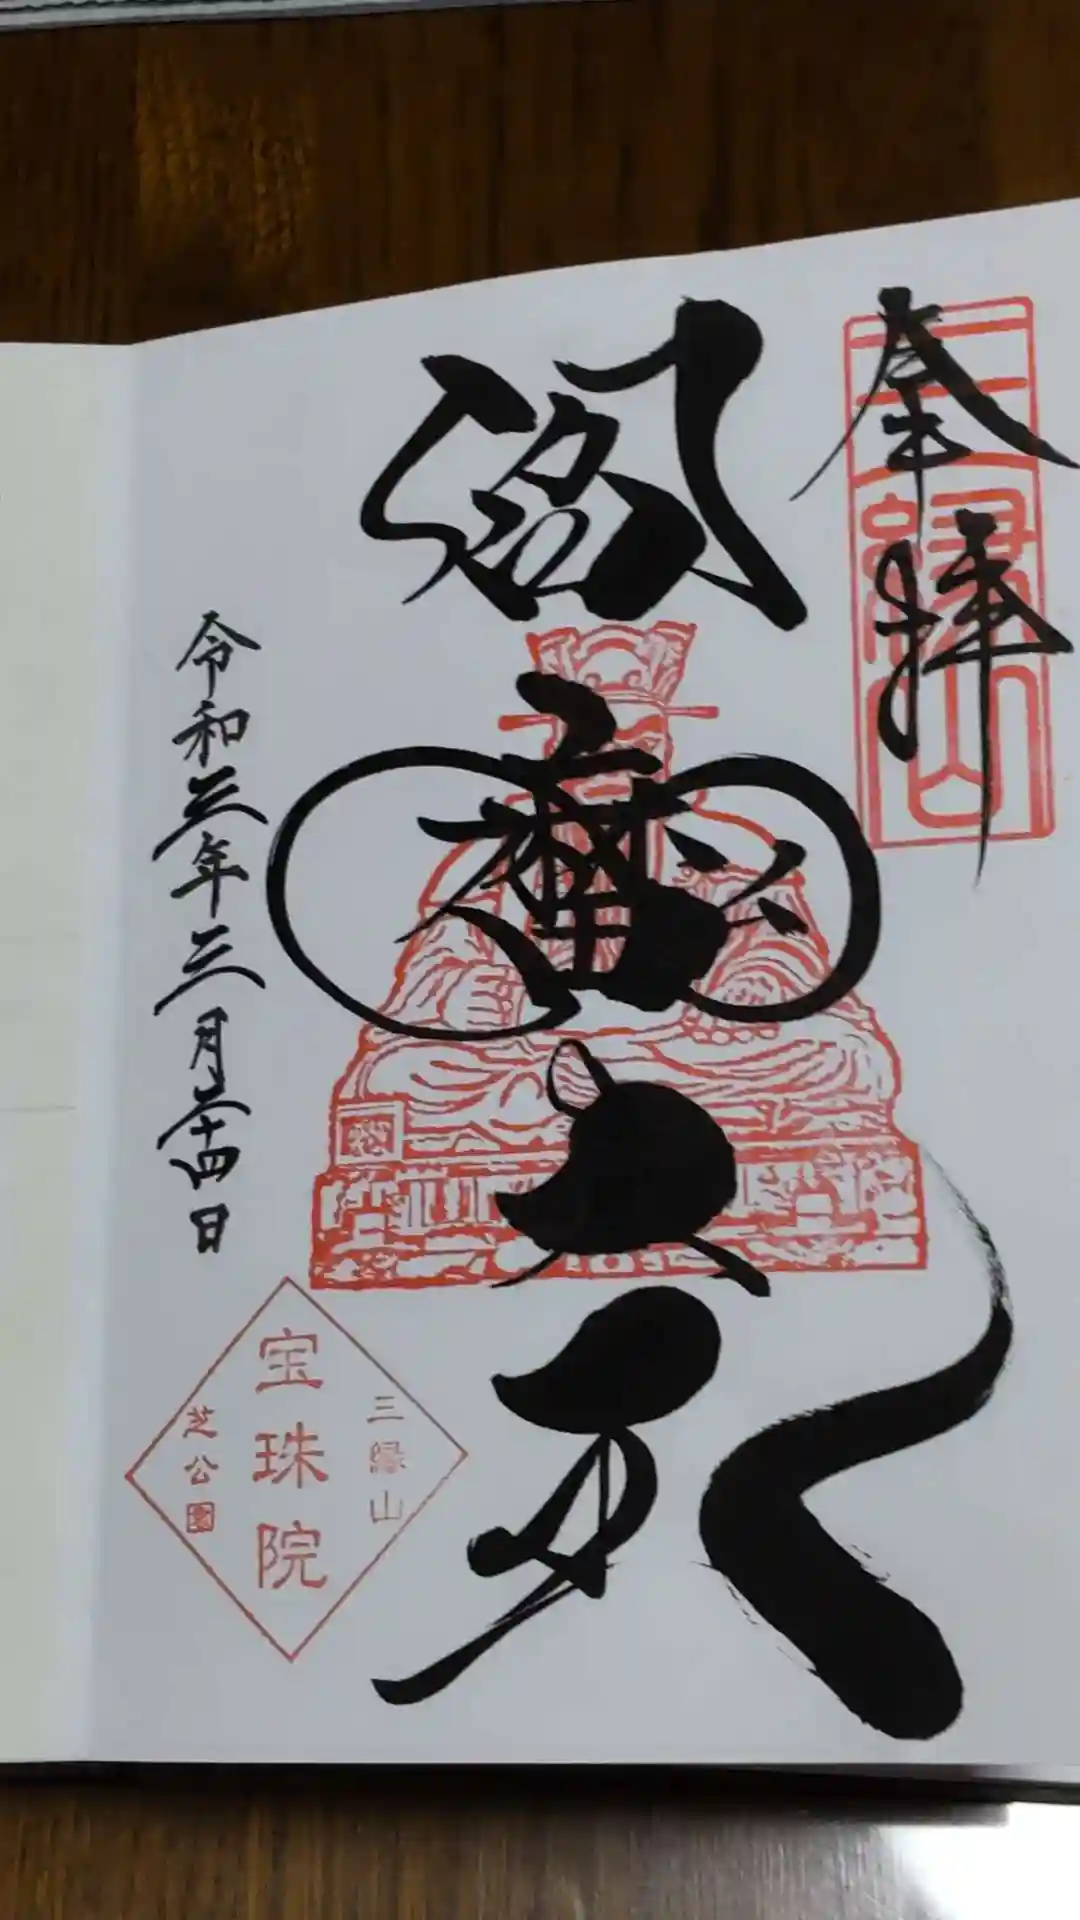 奉拝
三縁山
閻魔大王
令和三年三月二十四日
三縁山
宝珠院
芝公園